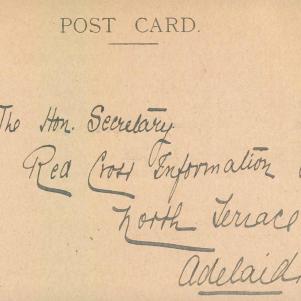 POST CARD.
The Hon. Secretary
Red Cross Information
North Terrace
Adelaid